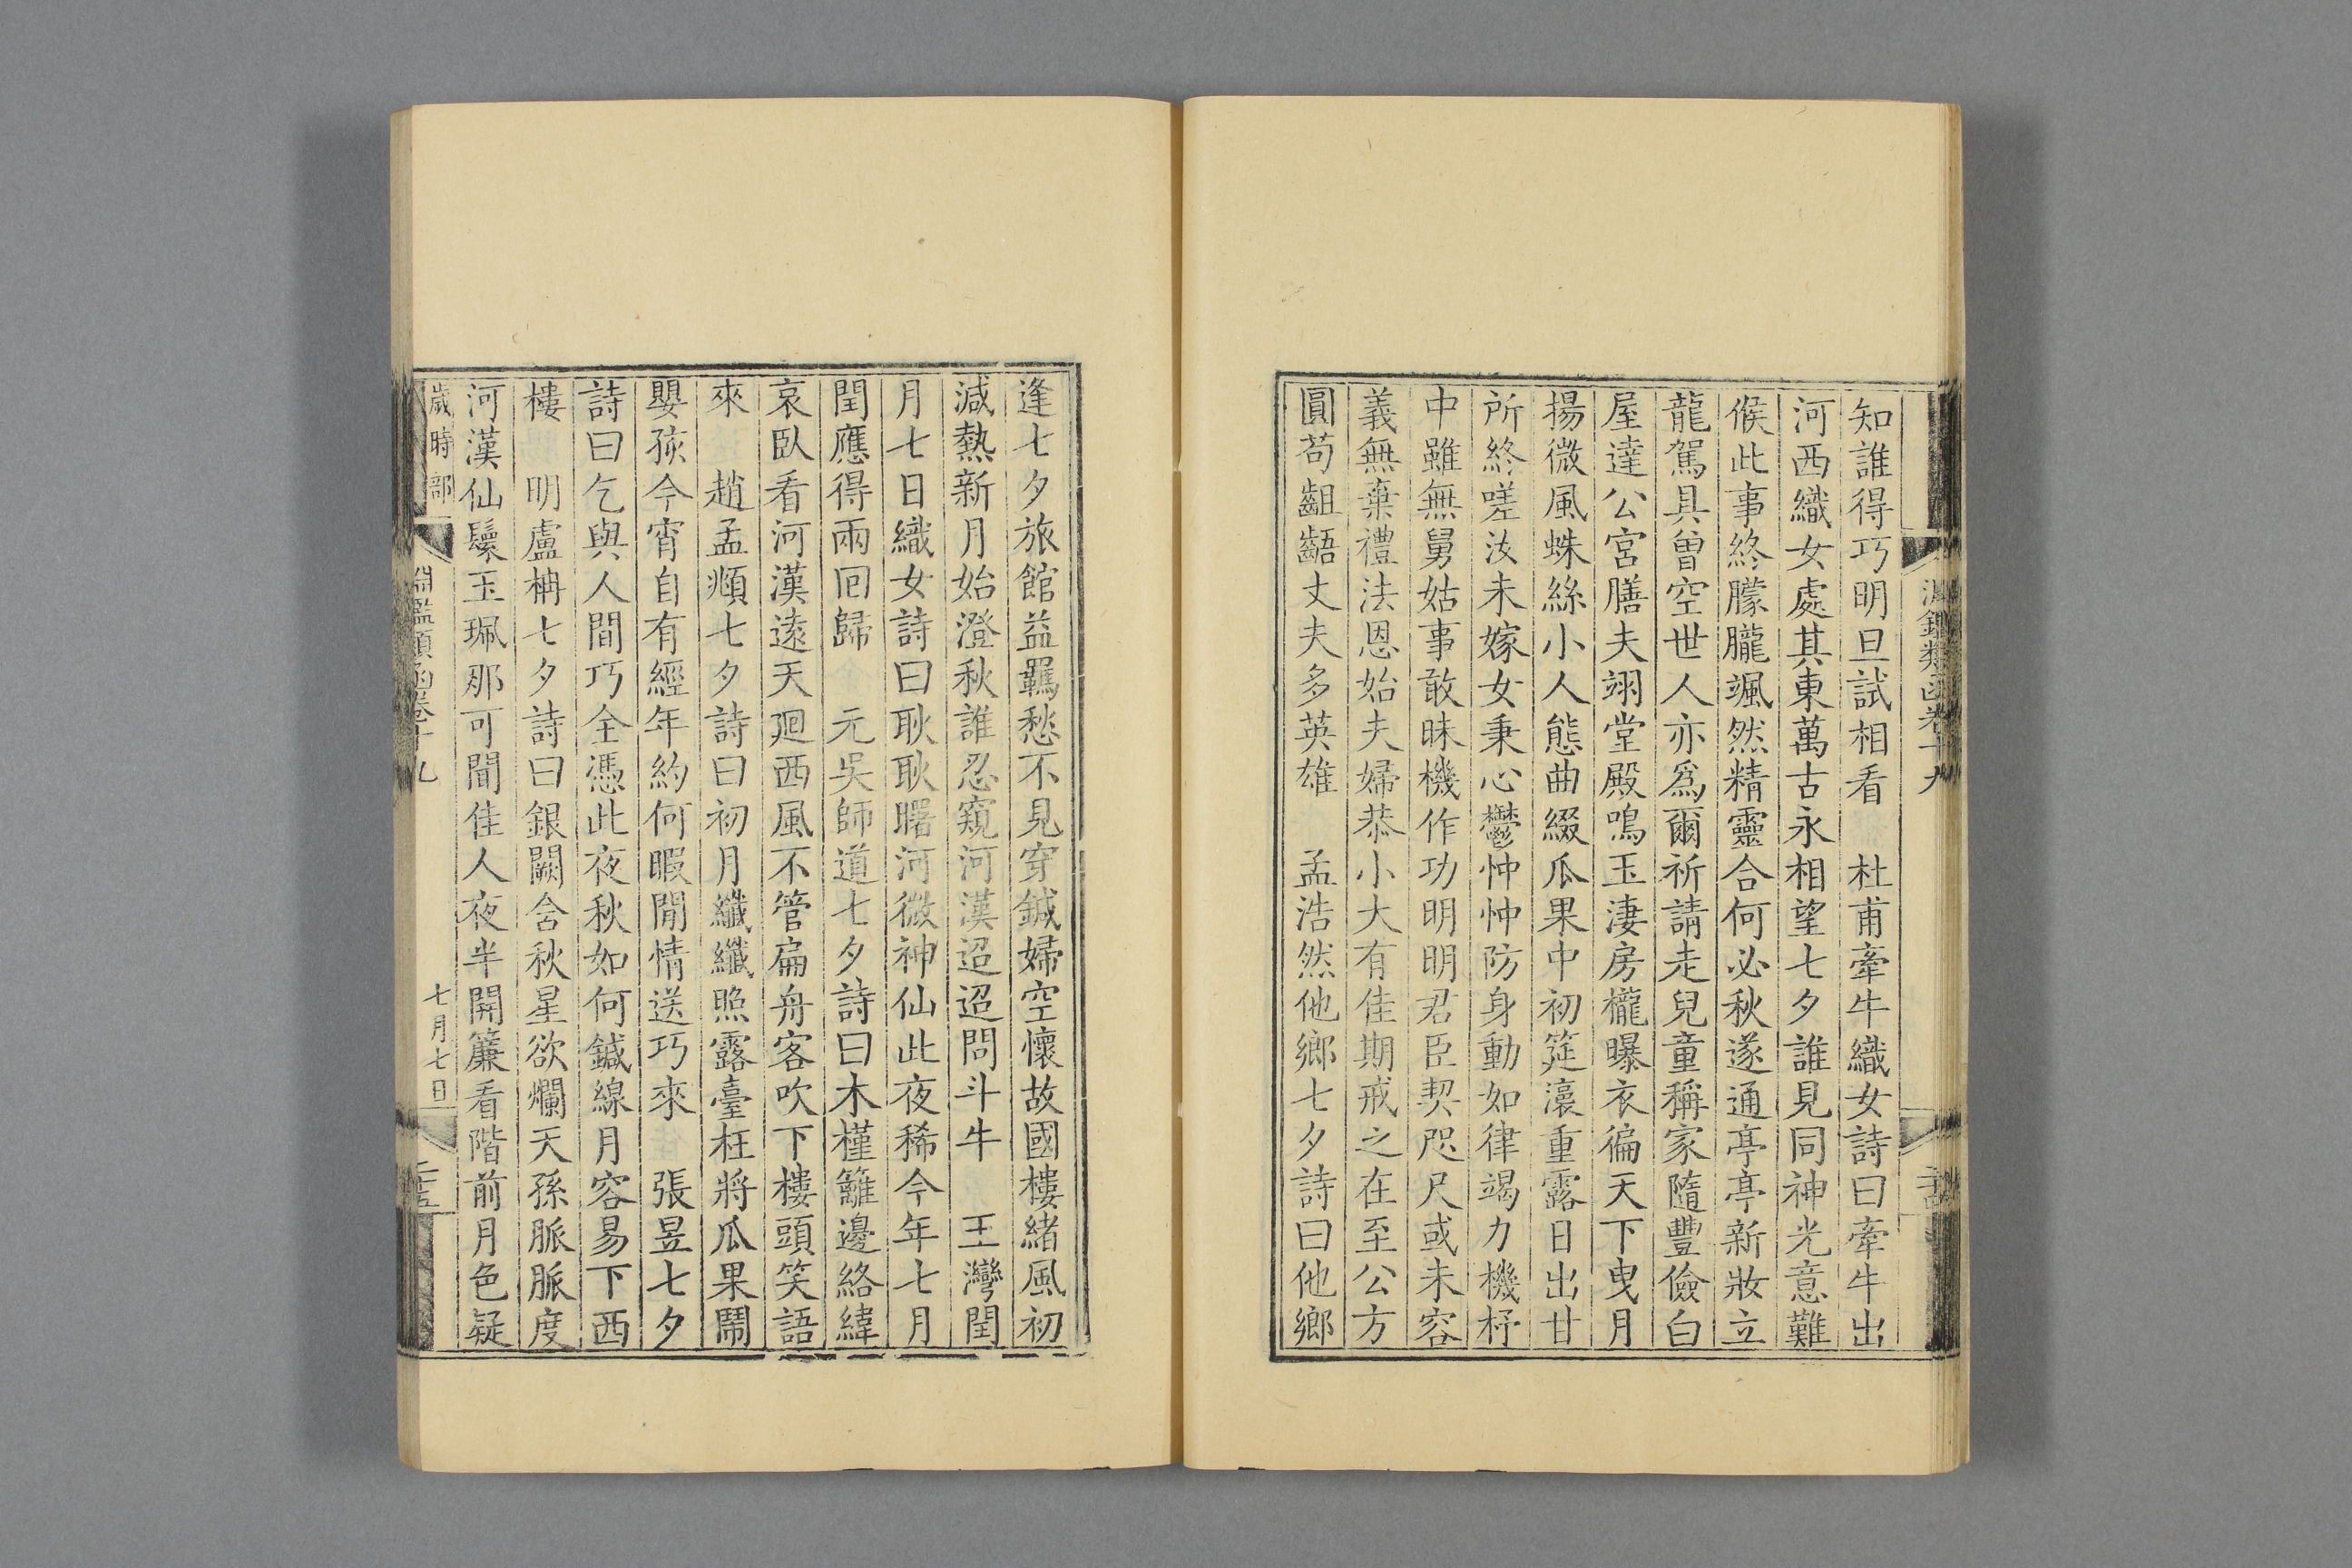 知誰得巧明旦試相看　杜甫牽牛織女詩曰牽牛出
河西織女處其東萬古永相望七夕誰見同神光意難
候此事終朦朧颯然精靈合何必秋遂通亭亭新妝立
龍駕具曾空世人亦爲爾祈請走兒童稱家隨豐儉白
屋達公宮膳夫翊堂殿鳴玉淒房櫳曝衣徧天下曳月
揚微風蛛絲小人態曲綴瓜果中初筵瀼重露日出甘
所終嗟汝未嫁女秉心鬱忡忡防身動如律竭力機杼
中雖無舅姑事敢昧機作功明明君臣契咫尺或未容
義無棄禮法恩始夫婦恭小大有佳期戒之在至公方
圓苟齟齬丈夫多英雄　孟浩然他鄉七夕詩曰他鄉
逢七夕旅館益羈愁不見穿鍼婦空懷故國樓緒風初
減熱新月始澄秋誰忍窺河漢迢迢問斗牛　王灣閏
月七日織女詩曰耿耿曙河微神仙此夜稀今年七月
閏應得兩囘歸　元吳師道七夕詩曰木槿籬邊絡緯
哀臥看河漢遠天廻西風不管扁舟客吹下樓頭笑語
來　趙孟頫七夕詩曰初月纖纖照露臺枉將瓜果鬧
嬰孩今宵自有經年約何暇閒情送巧來　張昱七夕
詩曰乞與人間巧全憑此夜秋如何鍼線月容易下西
樓　明盧柟七夕詩曰銀闕含秋星欲爛天孫脈脈度
河漢仙鬟玉珮那可聞佳人夜半開簾看階前月色疑
歲時部　淵鑑類函卷十九　七月七日　二十五